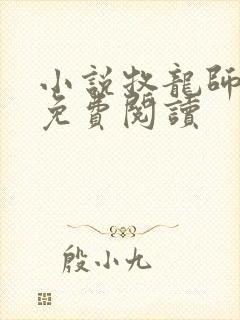 小說牧龍師
免費閱讀
殷小九